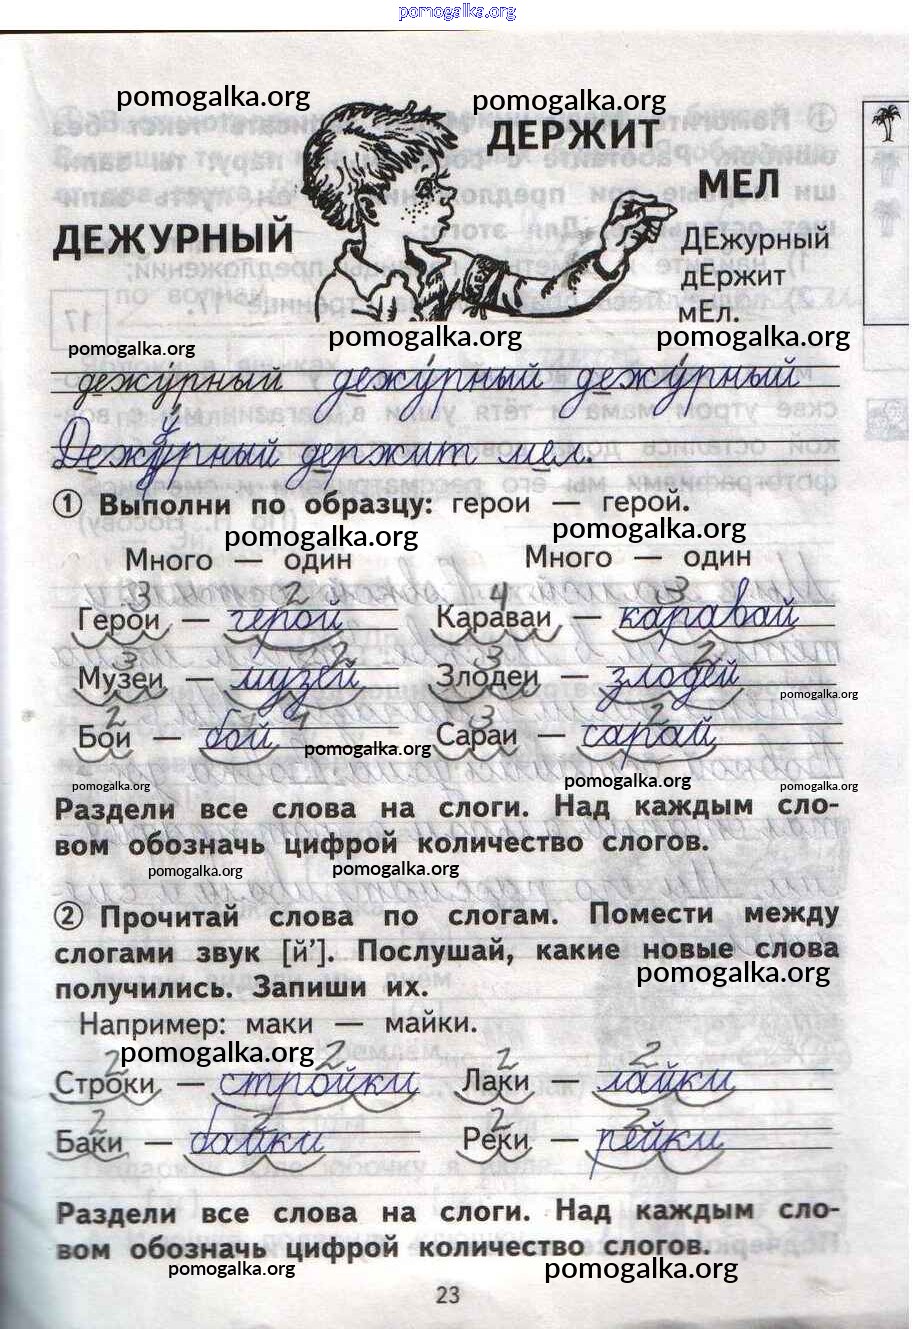 pomogalka.org
pomogalka.org
pomogalka.org
ДЕРЖИТ
МЕЛ
ДЕЖУРНЫЙ
ДЕжурный
дЕржит
мЕл.
17
pomogalka.org
pomogalka.org
pomogalka.org
дежу́рный дежу́рный дежу́рный
Дежу́рный держит мел.
① Выполни по образцу: герои — герой.
pomogalka.org
pomogalka.org
Много — один Много — один
3 2 4 3
Герои — герой Караваи — каравай
3 2 3 2
Музеи — музей Злодеи — злодей
pomogalka.org
2 1 3 2
Бои — бой Сараи — сарай
pomogalka.org
pomogalka.org
pomogalka.org
pomogalka.org
Раздели все слова на слоги. Над каждым сло-
вом обозначь цифрой количество слогов.
pomogalka.org
pomogalka.org
② Прочитай слова по слогам. Помести между
слогами звук [й’]. Послушай, какие новые слова
получились. Запиши их.
pomogalka.org
Например: маки — майки.
pomogalka.org
2 2 2 2
Строки — стройки Лаки — лайки
2 2 2 2
Баки — байки Реки — рейки
Раздели все слова на слоги. Над каждым сло-
вом обозначь цифрой количество слогов.
pomogalka.org
pomogalka.org
23